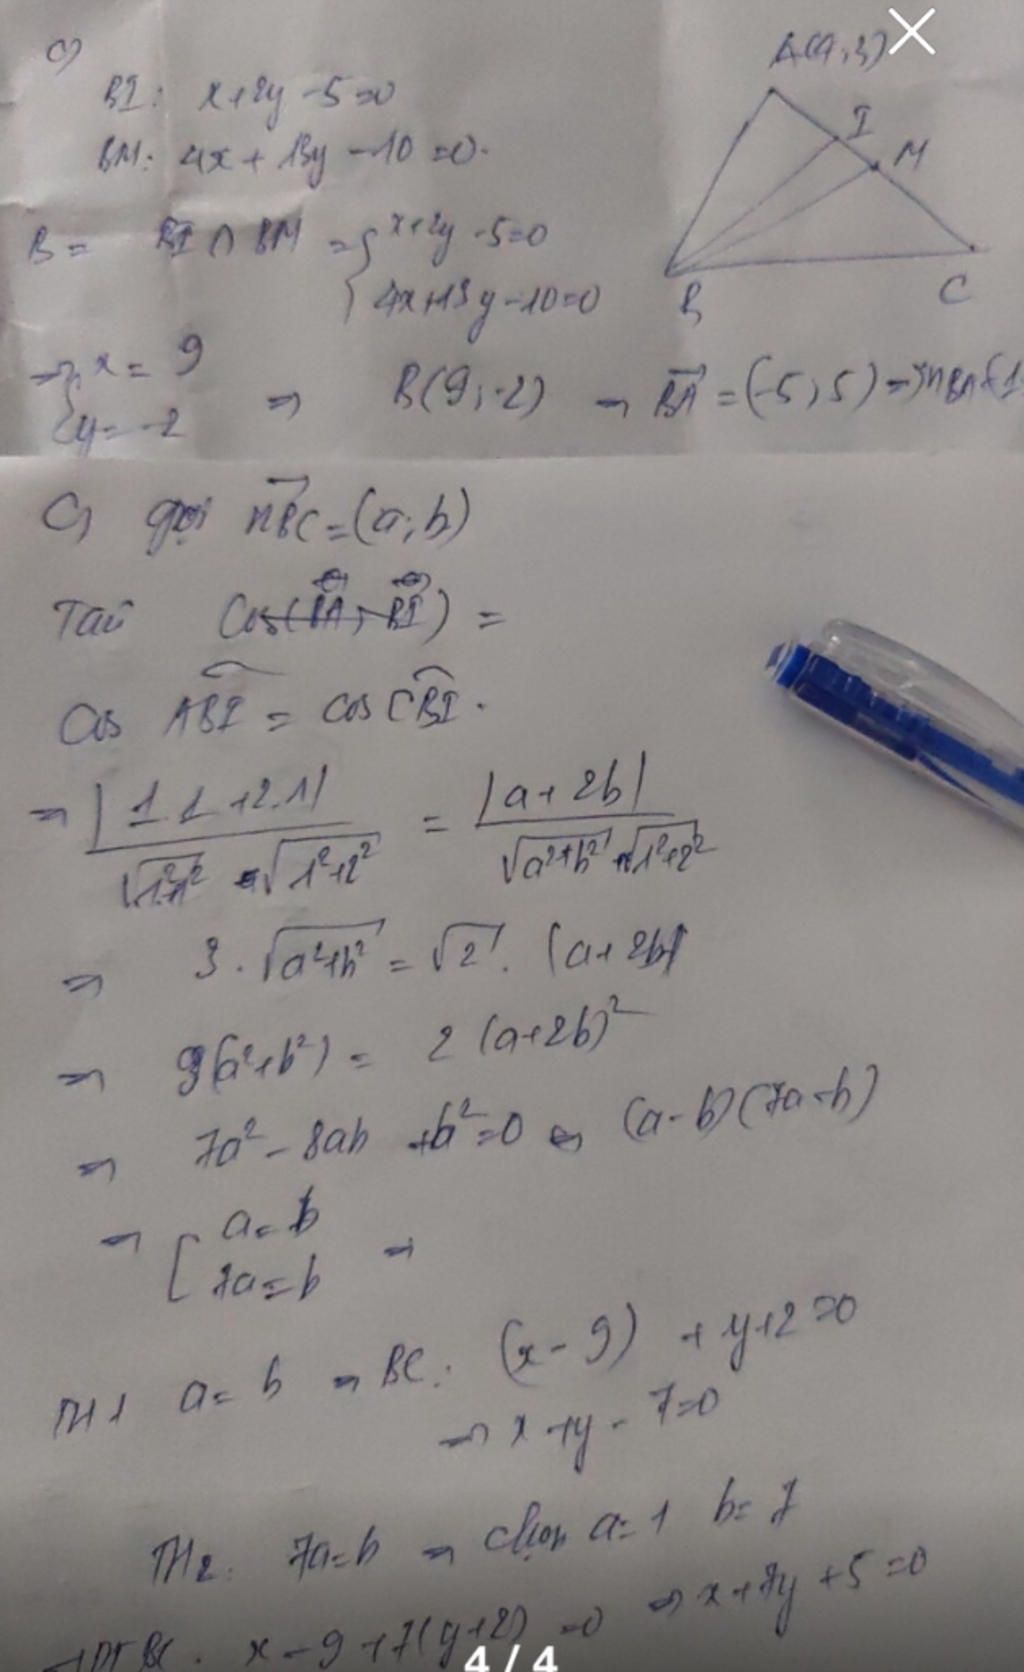 c)
A(4,3)
BI: x+2y-5=0
BM: 4x+13y-10=0.
I
M
B = BI ∩ BM = { x+2y-5=0
4x+13y-10=0
B
C
⇒ { x = 9
y = -2
⇒ B(9;-2) ⇒ BA = (-5;5) ⇒ n BA (1
C) gọi nBC = (a;b)
Ta có cos(BA, BI) =
Cos ABI = cos CBI.
⇒ |1.1+2.1| / √1²+1² . √1²+2² = |a+2b| / √a²+b² . √1²+2²
⇒ 3.√a²+b² = √2 . |a+2b|
⇒ 9(a²+b²) = 2(a+2b)²
⇒ 7a²-8ab+b²=0 ⇔ (a-b)(7a-b)
⇒ [ a=b
7a=b ⇒
TH1 a=b ⇒ BC: (x-9)+y+2=0
⇒ x+y-7=0
TH2: 7a=b ⇒ chọn a=1 b=7
⇒ PT BC: x-9+7(y+2)=0 ⇒ x+7y+5=0
4 / 4